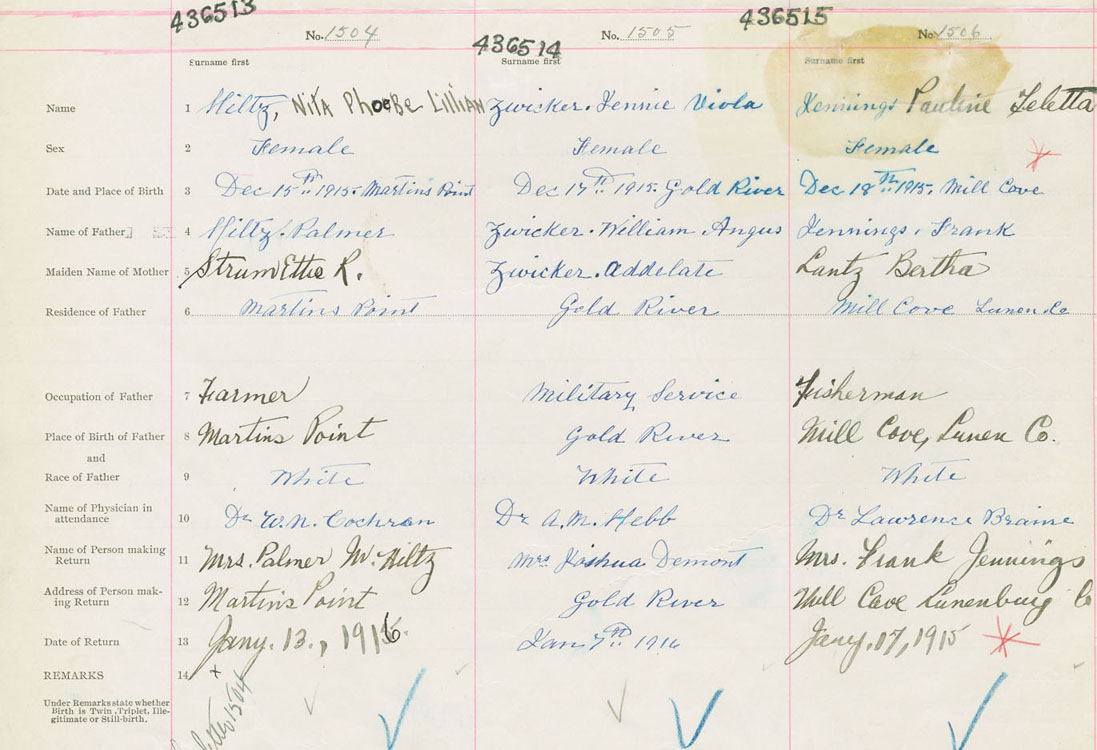 436513 436514 436515
No. 1504 No. 1505 No. 1506
Surname first Surname first Surname first
Name 1 Hiltz, Nita Phoebe Lillian Zwicker. Jennie Viola Jennings Pauline Teletta
Sex 2 Female Female Female
Date and Place of Birth 3 Dec 15th 1915. Martins Point Dec 17th 1915. Gold River Dec 18th 1915. Mill Cove
Name of Father 4 Hiltz. Palmer Zwicker. William Angus Jennings, Frank
Maiden Name of Mother 5 Strum Ettie R. Zwicker. Addelate Lantz Bertha
Residence of Father 6 Martins Point Gold River Mill Cove
Occupation of Father 7 Farmer Military Service Fisherman
Place of Birth of Father 8 Martins Point Gold River Mill Cove, Lunen Co.
and
Race of Father 9 White White White
Name of Physician in
attendance 10 Dr W.N. Cochran Dr A.M. Hebb Dr Lawrence Braine
Name of Person making
Return 11 Mrs. Palmer W. Hiltz Mrs Joshua Demont Mrs. Frank Jennings
Address of Person mak-
ing Return 12 Martins Point Gold River Mill Cove Lunenburg Co
Date of Return 13 Jany. 13., 1916. Jan 7th 1916 Jany. 17, 1915
REMARKS 14
Under Remarks state whether
Birth is Twin, Triplet, Ille-
gitimate or Still-birth.
letter 1504